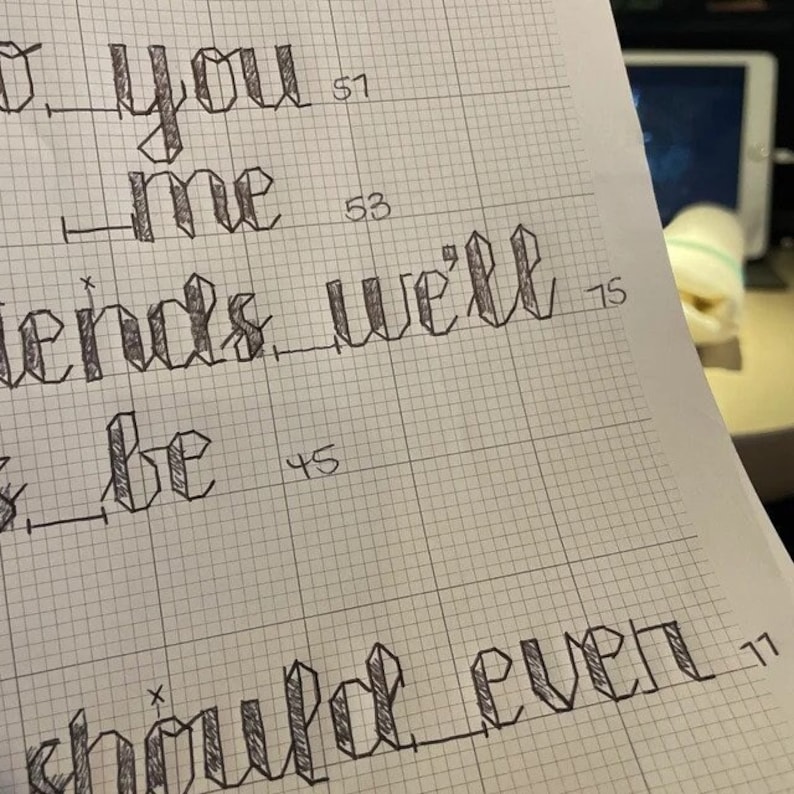 o you 51
me 53
iends we'll 75
s be 45
should even 77